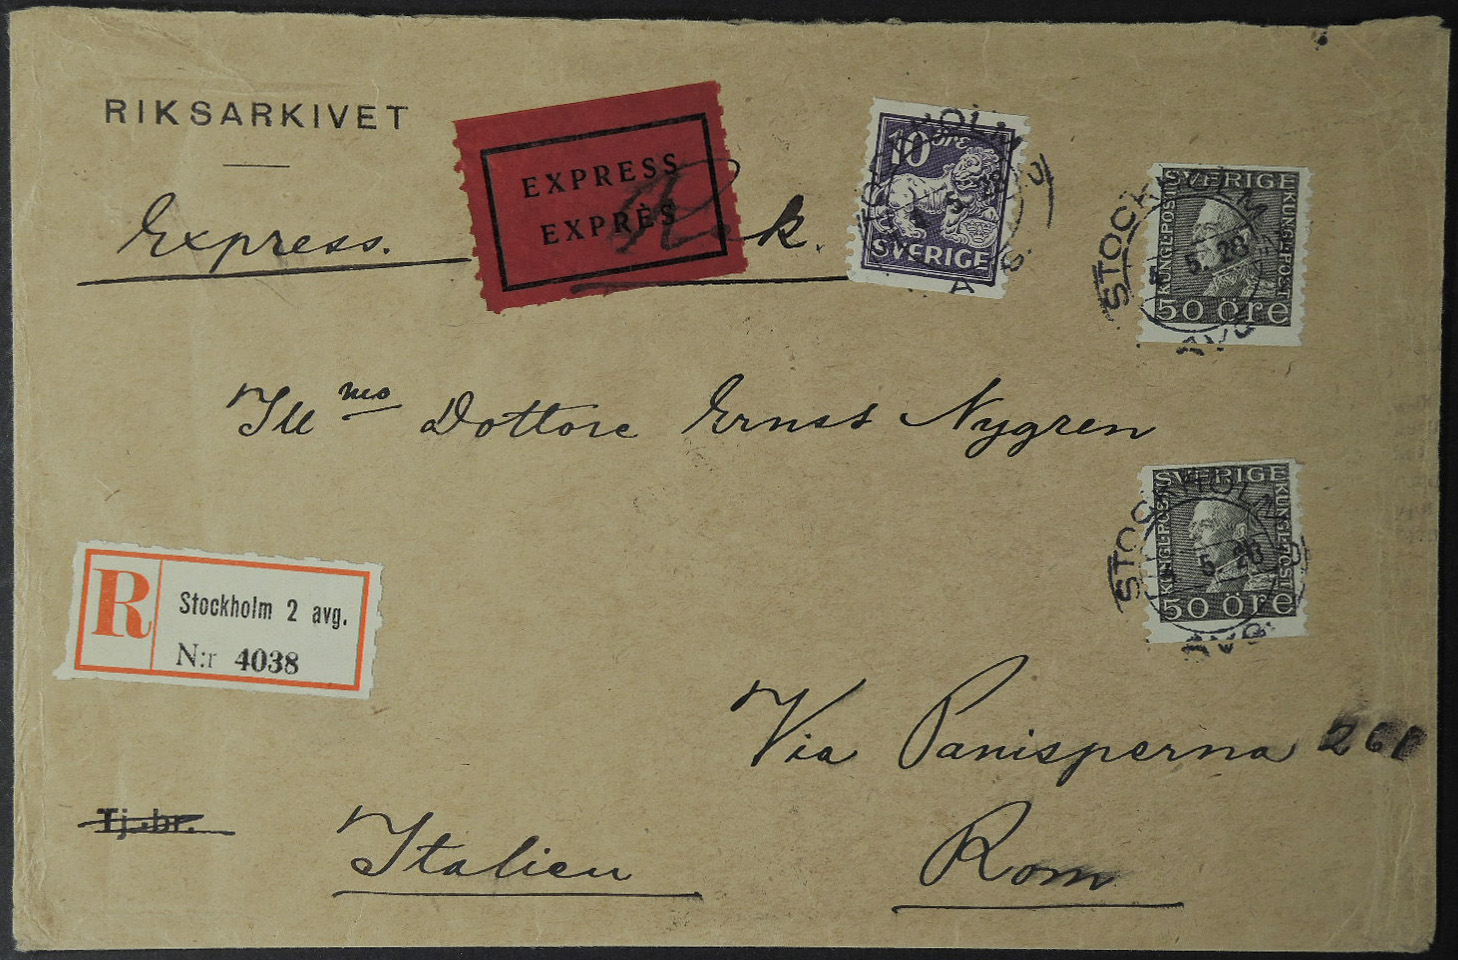 RIKSARKIVET
Express. Rek.
EXPRESS
EXPRÈS
10 ÖRE
SVERIGE
STOCKHOLM
SVERIGE
KUNGL·POST
KUNGL·POST
50 öre
STOCKHOLM
5. 5. 28
AVG.
Illmo Dottore Ernst Nygren
SVERIGE
KUNGL·POST
KUNGL·POST
50 öre
STOCKHOLM
5. 28
AVG.
R
Stockholm 2 avg.
N:r 4038
Via Panisperna 261
Tj.br.
Italien
Rom